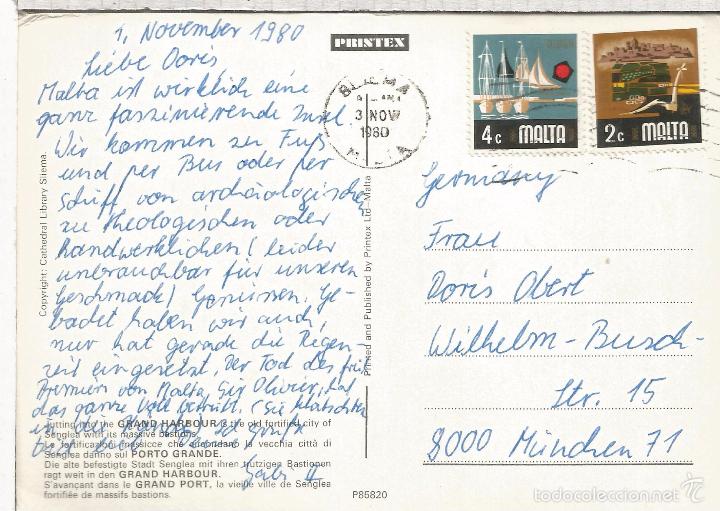 1. November 1980
Liebe Doris
Malta ist wirklich eine
ganz faszinierende Insel.
Wir kommen zu Fuß
und per Bus oder per
Schiff von archäologischen
zu theologischen oder
handwerklichen (leider
unbrauchbar für unseren
Geschmack) Genüssen. Ge-
badet haben wir auch,
nur hat gerade die Regen-
zeit eingesetzt. Der Tod des
Premiers von Malta, Sir Olivier, hat
das ganze Volk
in der
Gabi II
PRINTEX
SLIEMA
3 NOV
1980
MALTA
4c MALTA
2c MALTA
Germany
Frau
Doris Obert
Wilhelm-Busch-
Str. 15
8000 München 71
Copyright: Cathedral Library Sliema.
Printed and Published by Printox Ltd-Malta
Jutting into the GRAND HARBOUR is the old fortified city of
Senglea with its massive bastions.
Le fortificazioni massicce che circondano la vecchia città di
Senglea danno sul PORTO GRANDE.
Die alte befestigte Stadt Senglea mit ihren trutzigen Bastionen
ragt weit in den GRAND HARBOUR.
S'avançant dans le GRAND PORT, la vieille ville de Senglea
fortifiée de massifs bastions.
P85820
todocoleccion.net